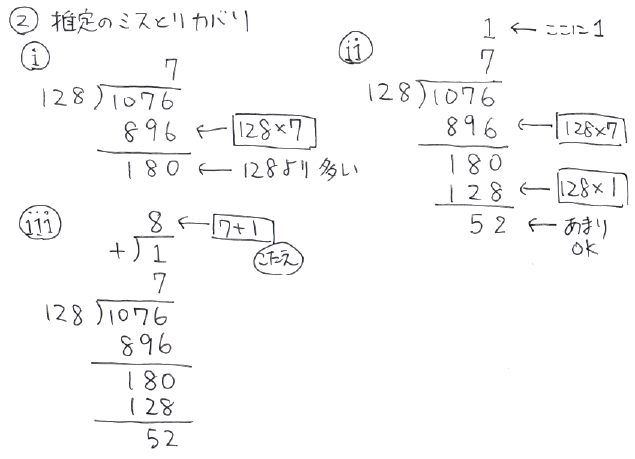 ② 推定のミスとリカバリ
ⓘ
7
128)1076
896 ← 128×7
180 ← 128より多い
ⅱ
1 ← ここに1
7
128)1076
896 ← 128×7
180
128 ← 128×1
52 ← あまり
OK
ⅲ
8 ← 7+1
こたえ
+)1
7
128)1076
896
180
128
52